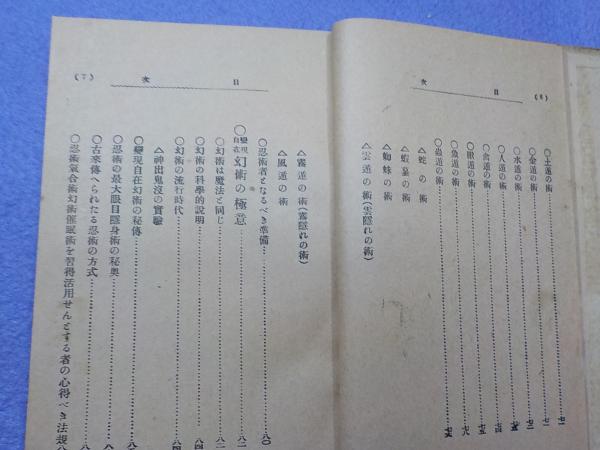 目次
(6)
○土遁の術
○金遁の術
○水遁の術
○人遁の術
○禽遁の術
○獣遁の術
○魚遁の術
○蟲遁の術
△蛇の術
△蝦蟇の術
△蜘蛛の術
△雲遁の術(雲隠れの術)
目次
(7)
△霧遁の術(霧隠れの術)
△風遁の術
○忍術者となるべき準備 八〇
○變現自在幻術の極意 八二
○幻術は魔法と同じ 八二
○幻術の科學的説明 八四
○幻術の流行時代 八四
△神出鬼沒の實驗
○變現自在幻術の秘傳
○忍術の最大眼目隱身術の秘奥
○古來傳へられたる忍術の方式
○忍術氣合術幻術催眠術を習得活用せんとする者の心得べき法規